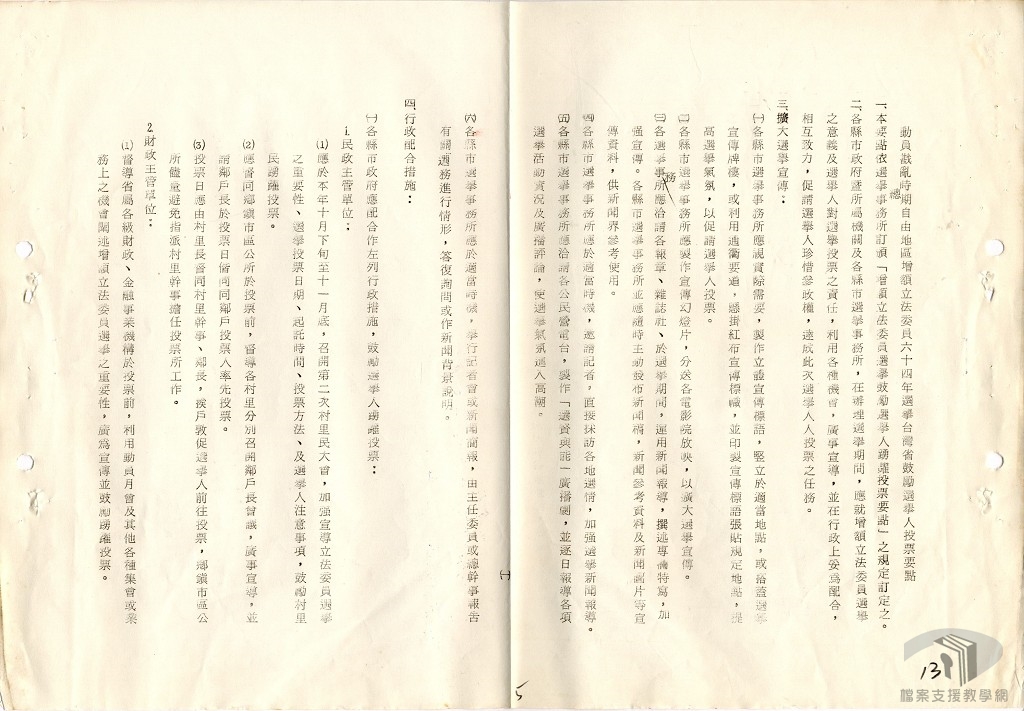 動員戡亂時期自由地區增額立法委員六十四年選舉台灣省鼓勵選舉人投票要點
一、本要點依選舉總事務所訂頒「增額立法委員選舉鼓勵選舉人踴躍投票要點」之規定訂定之。
二、各縣市政府暨所屬機關及各縣市選舉事務所，在辦理選舉期間，應就增額立法委員選舉
之意義及選舉人對選舉投票之責任，利用各種機會，廣事宣導，並在行政上妥為配合，
相互致力，促請選舉人珍惜參政權，達成此次選舉人投票之任務。
三、擴大選舉宣傳：
㈠各縣市選舉事務所應視實際需要，製作立體宣傳標語，豎立於適當地點，或搭蓋選舉
宣傳牌樓，或利用通衢要道，懸掛紅布宣傳標幟，並印製宣傳標語張貼規定地點，提
高選舉氣氛，以促請選舉人投票。
㈡各縣市選舉事務所應製作宣傳幻燈片，分送各電影院放映，以擴大選舉宣傳。
㈢各選舉事務所應洽請各報章、雜誌社、於選舉期間，運用新聞報導，撰述專論特寫，加
強宣傳。各縣市選舉事務所並應隨時主動發布新聞稿，新聞參考資料及新聞圖片等宣
傳資料，供新聞界參考使用。
㈣各縣市選舉事務所應於適當時機，邀請記者，直接採訪各地選情，加强選舉新聞報導。
㈤各縣市選舉事務所應洽請各公民營電台，製作「選賢與能」廣播劇，並逐日報導各項
選舉活動實況及廣播評論，使選舉氣氛進入高潮。
㈥各縣市選舉事務所應於適當時機，舉行記者會或新聞簡報，由主任委員或總幹事報告
有關選務進行情形，答復詢問或作新聞背景說明。
四、行政配合措施：
㈠各縣市政府應配合作左列行政措施，鼓勵選舉人踴躍投票：
1.民政主管單位：
⑴應於本年十月下旬至十一月底，召開第二次村里民大會，加強宣導立法委員選舉
之重要性、選舉投票日期、起訖時間、投票方法、及選舉人注意事項，鼓勵村里
民踴躍投票。
⑵應督同鄉鎮市區公所於投票前，督導各村里分別召開鄰戶長會議，廣事宣導，並
請鄰戶長於投票日偕同同鄰戶投票人率先投票。
⑶投票日應由村里長督同村里幹事、鄰長，挨戶敦促選舉人前往投票，鄉鎮市區公
所儘量避免指派村里幹事擔任投票所工作。
2.財政主管單位：
⑴督導省屬各級財政、金融事業機構於投票前，利用動員月會及其他各種集會或業
務上之機會闡述增額立法委員選舉之重要性，廣為宣傳並鼓勵踴躍投票。
㈠
5
13
檔案支援教學網